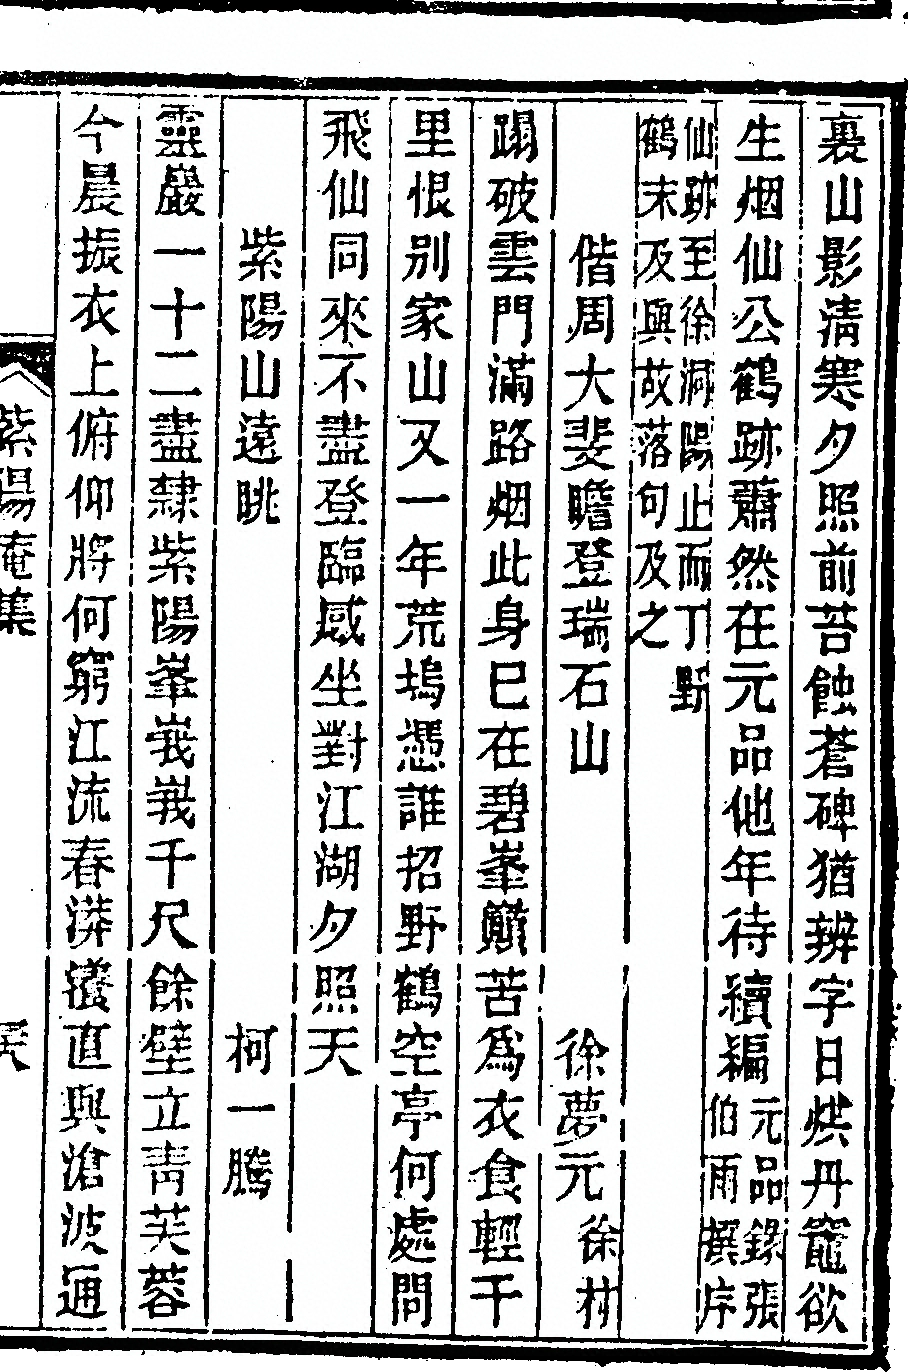 裏山影淸寒夕照前苔蝕蒼碑猶辨字日烘丹竈欲
生烟仙公鶴跡蕭然在元品他年待續編元品錄張
伯雨撰序
仙跡至徐洞陽止而丁野
鶴末及與故落句及之
偕周大斐瞻登瑞石山 徐夢元 徐村
蹋破雲門滿路烟此身已在碧峯巓苦爲衣食輕千
里恨别家山又一年荒塢憑誰招野鶴空亭何處問
飛仙同來不盡登臨感坐對江湖夕照天
紫陽山遠眺 柯一騰
靈巖一十二盡隸紫陽峯峩峩千尺餘壁立靑芙蓉
今晨振衣上俯仰將何窮江流春漭瀁直與滄波通
紫陽庵集